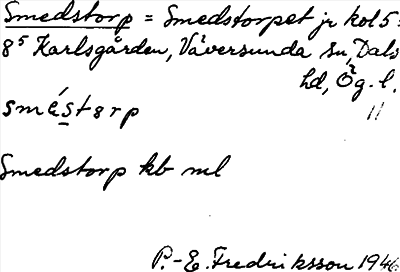 Smedstorp = Smedstorpet jr kol 5:
8⁵ Karlsgården, Väversunda sn, Dals
hd, Ög. l.
sméstɛrp
Smedstorp kb ml
P.-E. Fredriksson 1946